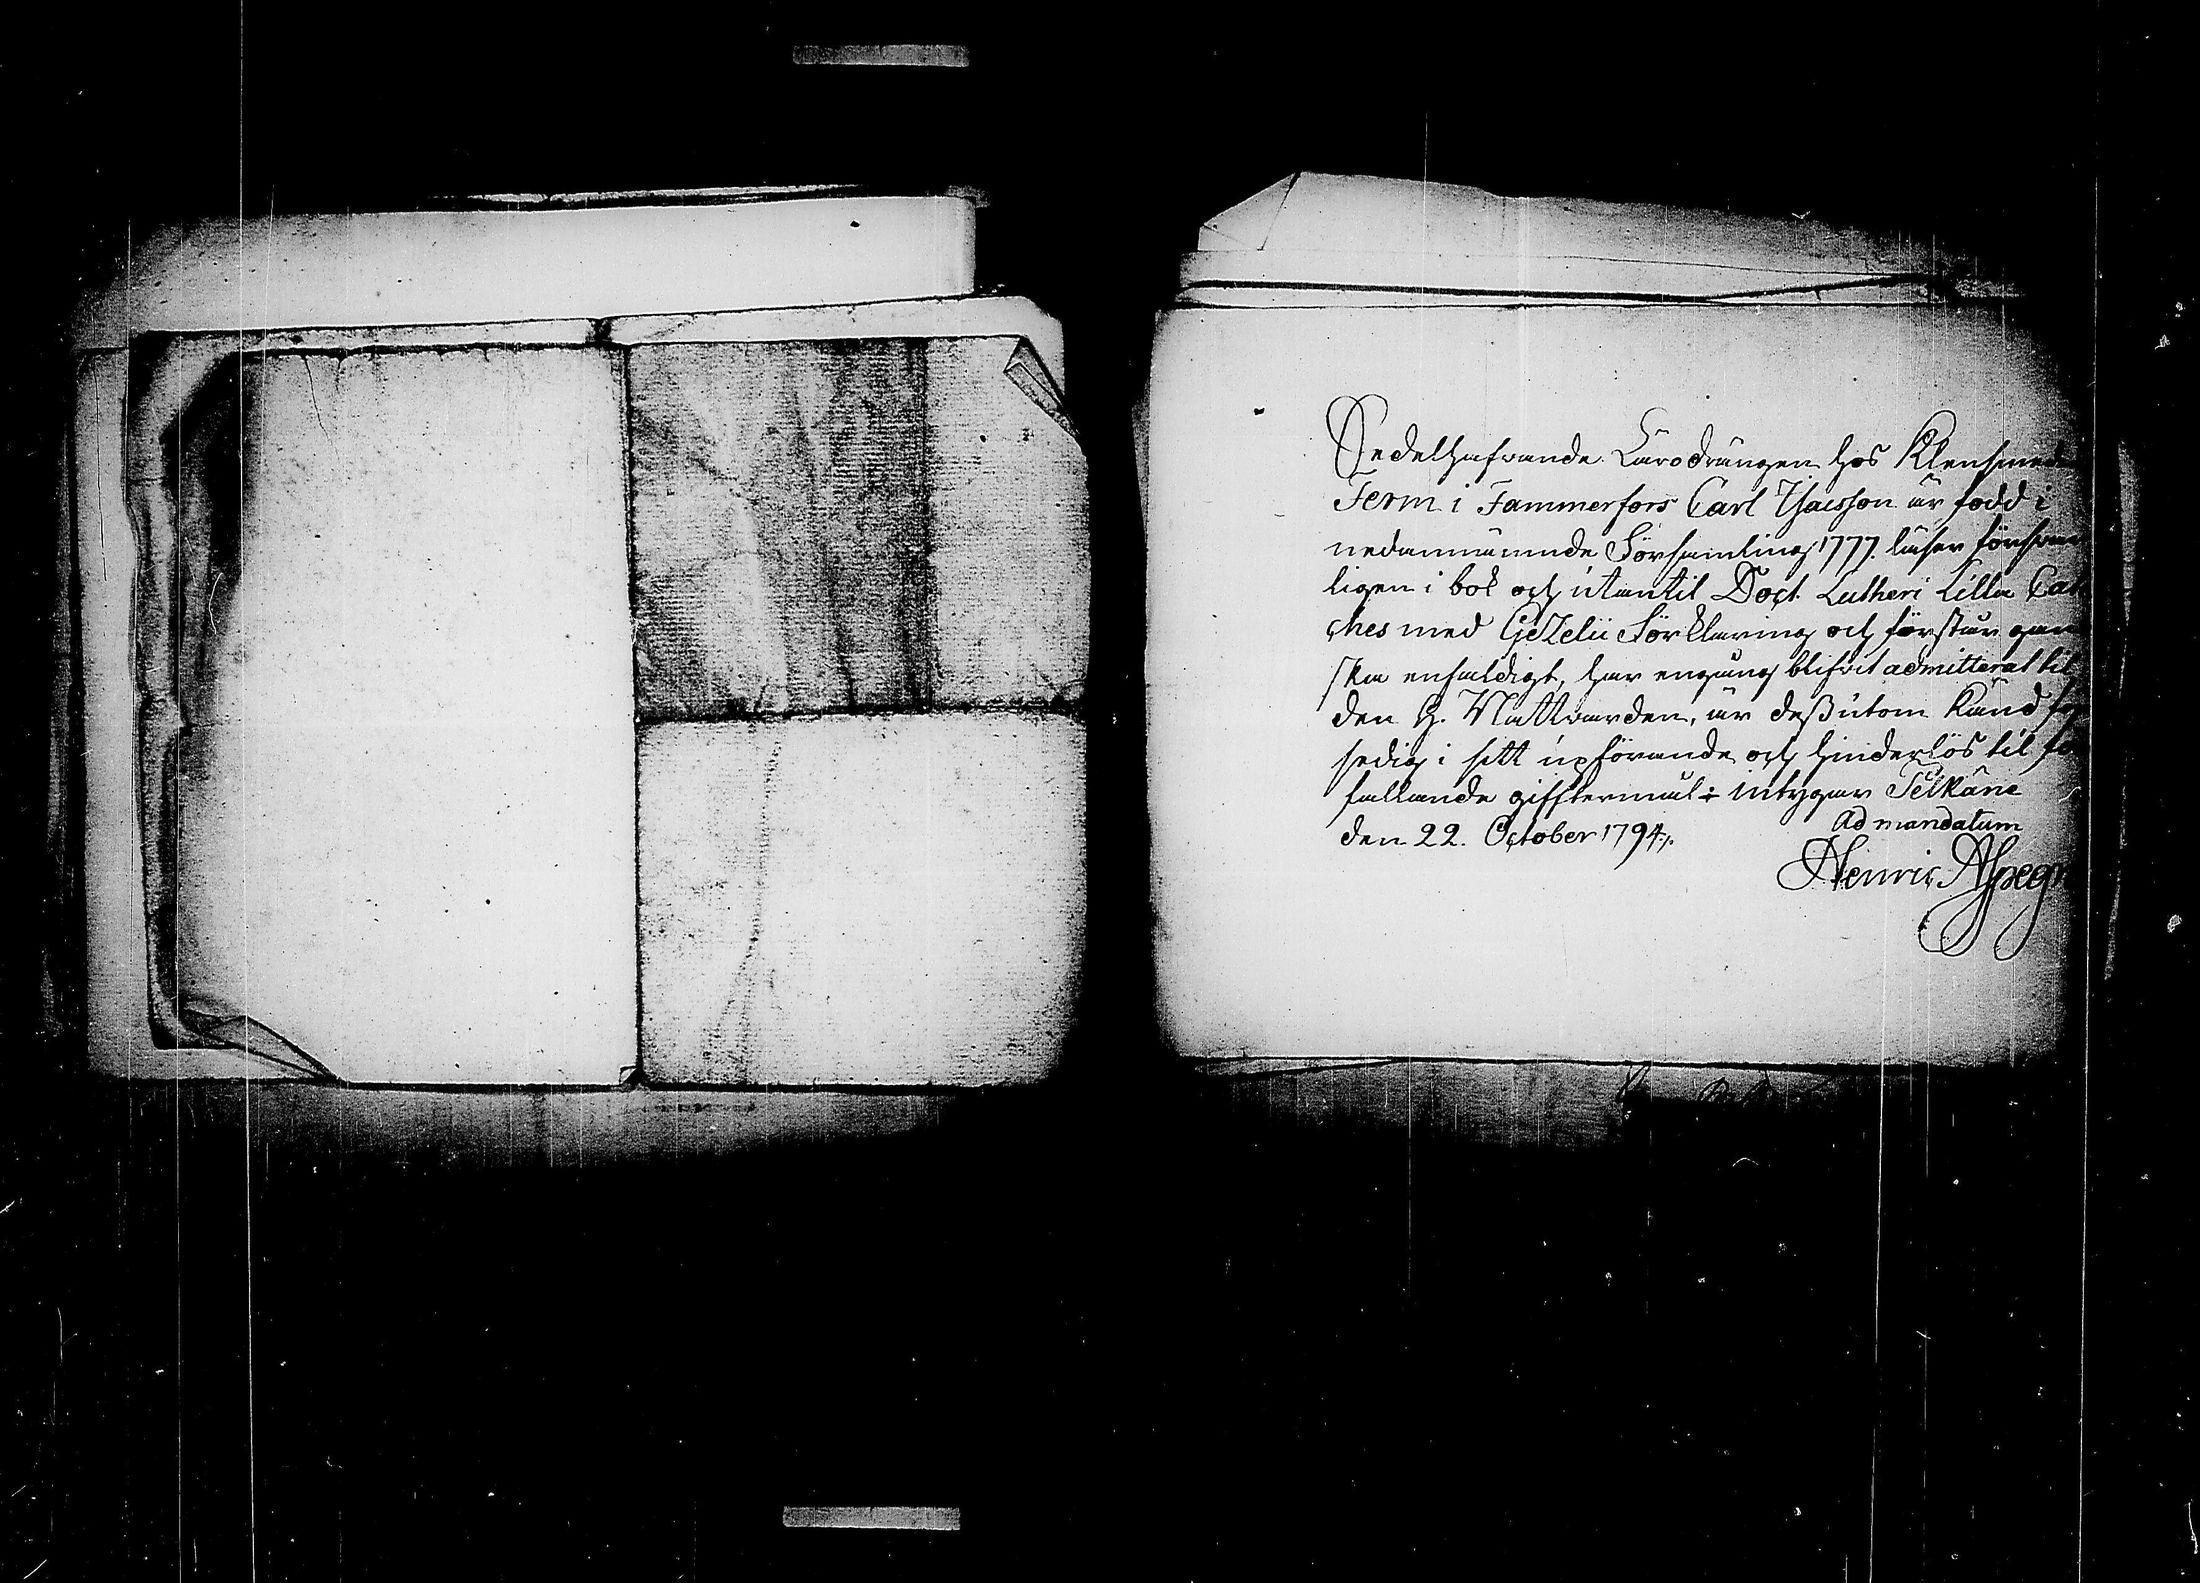 Sedelhafvande Lärodrängen hos Klensmeden
Ferm i Tammerfors Carl Isacsson är född i
nedannämnde Församling 1777. läser försvar
ligen i bok och utantil Doct. Lutheri Lilla Cat
ches med Gezelii Förklaring och förstår gan
ska enfaldigt, har engång blifvit admitterat til
den H. Nattvarden, är dessutom känd för
sedig i sitt upförande och hinderlös til fö
fallande gifftermål; intygarSelkäne
den 22. October 1794.
Ad mandatum
Henric Aspegr